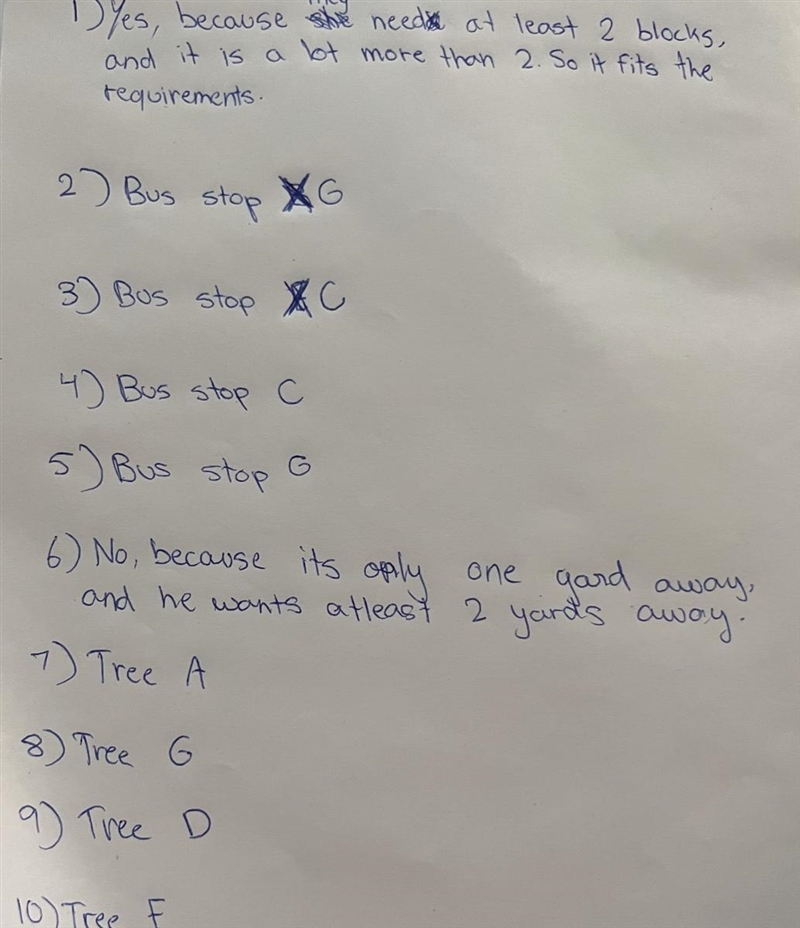 they
1) Yes, because she need at least 2 blocks,
and it is a lot more than 2. So it fits the
requirements.
2) Bus stop G
3) Bus stop C
4) Bus stop C
5) Bus stop G
6) No, because its only one gard away,
and he wants atleast 2 yards away.
7) Tree A
8) Tree G
9) Tree D
10) Tree F